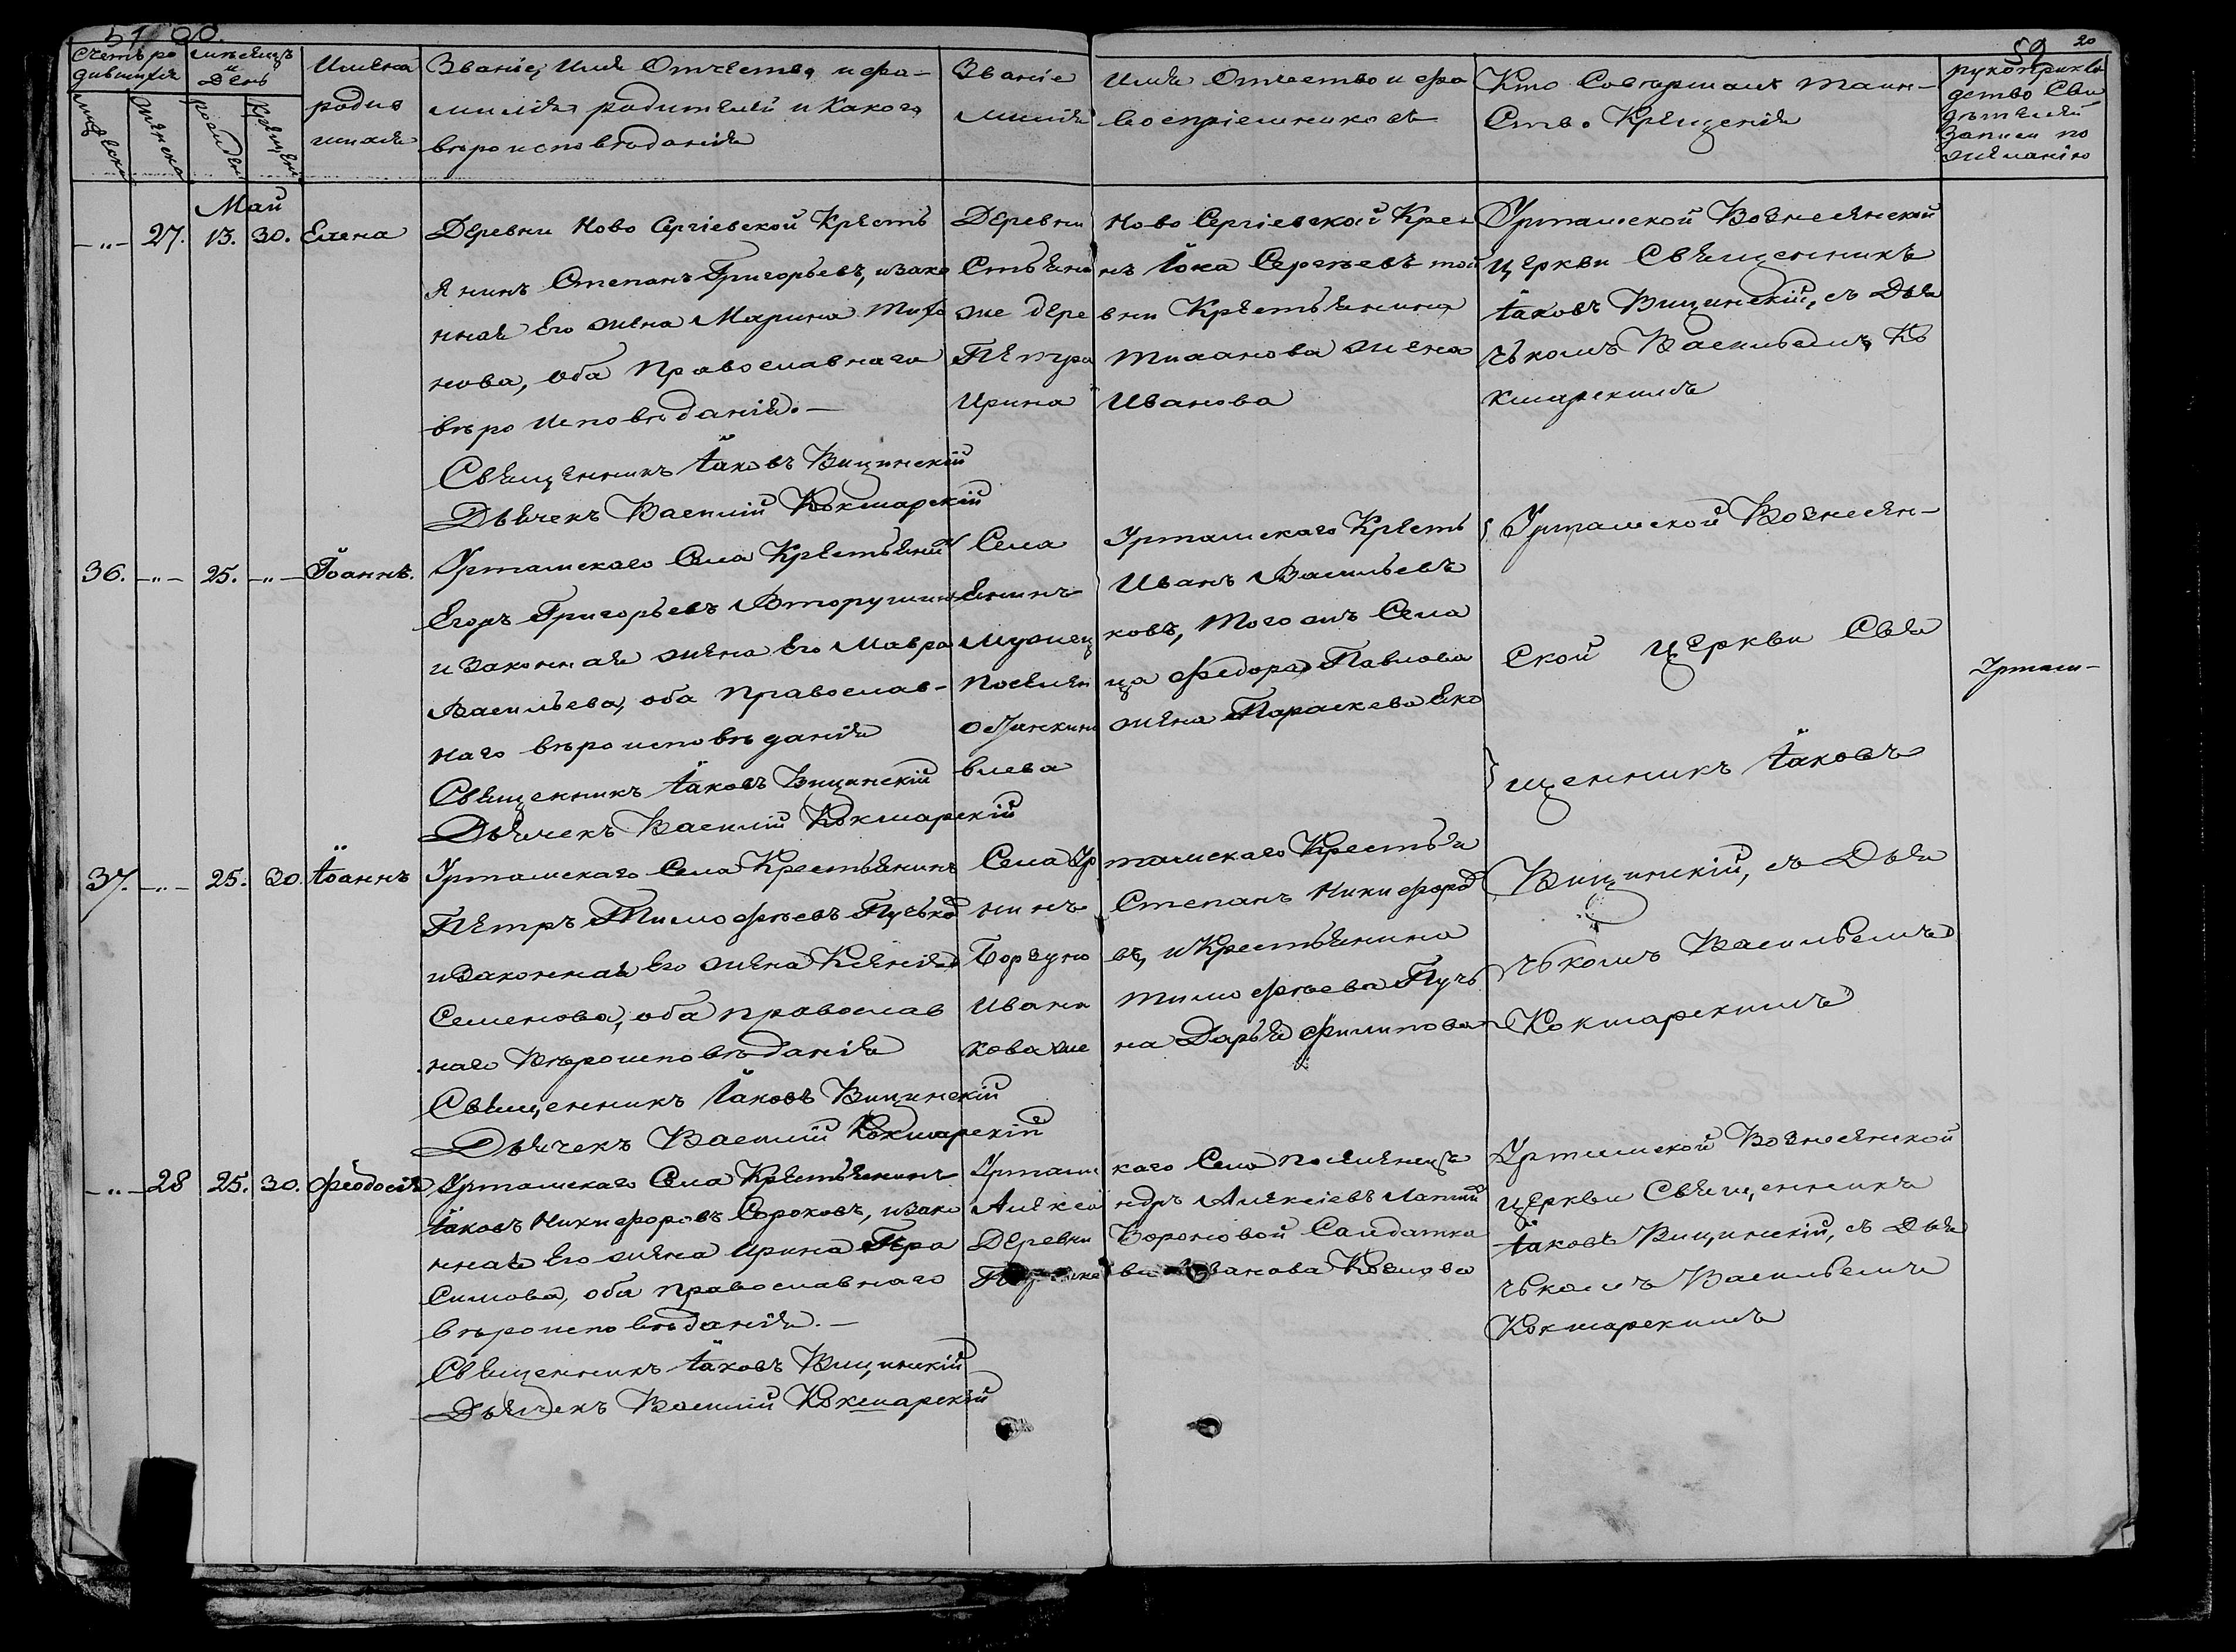 51 90.
59 20
Счетъ ро
дившихся
мужеска
женска
мѣсяцъ
и
День
рожден
Крещен
Имена
родив
шихся
Званіе, Имя Отчество, и фа-
милія родителей и Какого
вѣроисповѣданія
Званіе Имя Отчество и фа
милія воспріемниковъ
Кто Совершалъ таин-
Ство Крещенія
рукоприкла
дство Сви
дѣтелей
записи по
желанію
Май
-"- 27. 13. 30. Елена
Деревни Ново Сергіевской Кресть
янинъ Степанъ Григорьевъ, изако
нная Его жена Марина Тихо
нова, оба Православнаго
вѣро Исповѣданія.-
Священникъ Іаковъ Вицинскій
Дьячекъ Василій Кокшарскій
Деревни Ново Сергіевской Кре
Стьяни нъ Іока Сергѣевъ той
же дере вни Крестьянина
Петра Тиханова жена
Ирина Иванова
Урташской Вознесенской
церкви Священникъ
Іаковъ Вицинскій, съ Дья
чькомъ Васильемъ Ко
кшарскимъ
36. -"- 25. -"- Іоаннъ.
Урташскаго Села Крестьянинъ
Егоръ Григорьевъ Вторушинъ
и Законная жена Его Мавра
Васильева, оба Православ-
наго вѣроисповѣданія
Священникъ Іаковъ Вицинскій
Дьячекъ Василій Кокшарскій
Села Урташскаго Кресть
янинъ Иванъ Васильевъ
ковъ, Того жъ Села
Поселен ца Федора Павлова
жена Параскева Ека
влева
Урташской Вознесен-
ской церкви Свя
щенникъ Іаковъ
Урташ-
37. -"- 25. 30. Іоаннъ
Урташскаго Села Крестьянинъ
Петръ Тимофѣевъ Пучько
и Законная Его жена Ксенія
Семенова, оба Православ
наго Вѣроисповѣданія
Священникъ Іаковъ Вицинскій
Дьячекъ Василій Кокшарскій
Села Ур ташскаго Крестья
нинъ Степанъ Никифоро
Борзуно въ, и Крестьянина
Ивана Тимофѣева Пучь
кова же на Дарья Филипова
Вицинскій, съ Дья
чькомъ Васильемъ
Кокшарскимъ
-"- 28 25. 30. Феодосія
Урташскаго Села Крестьянинъ
Іаковъ Никифоровъ Сороковъ, изако
нная Его жена Ирина Гера
Симова, оба Православнаго
вѣроисповѣданія.-
Священникъ Іаковъ Вицинскій
Дьячекъ Василій Кокшарскій
Урташс каго Села Поселенецъ
Алекса ндръ Алексіевъ Лапши
Деревни Вороновой Салдатка
Иванова Козлова
Урташской Вознесенской
церкви Священникъ
Іаковъ Вицинскій, съ Дья
чькомъ Васильемъ
Кокшарскимъ